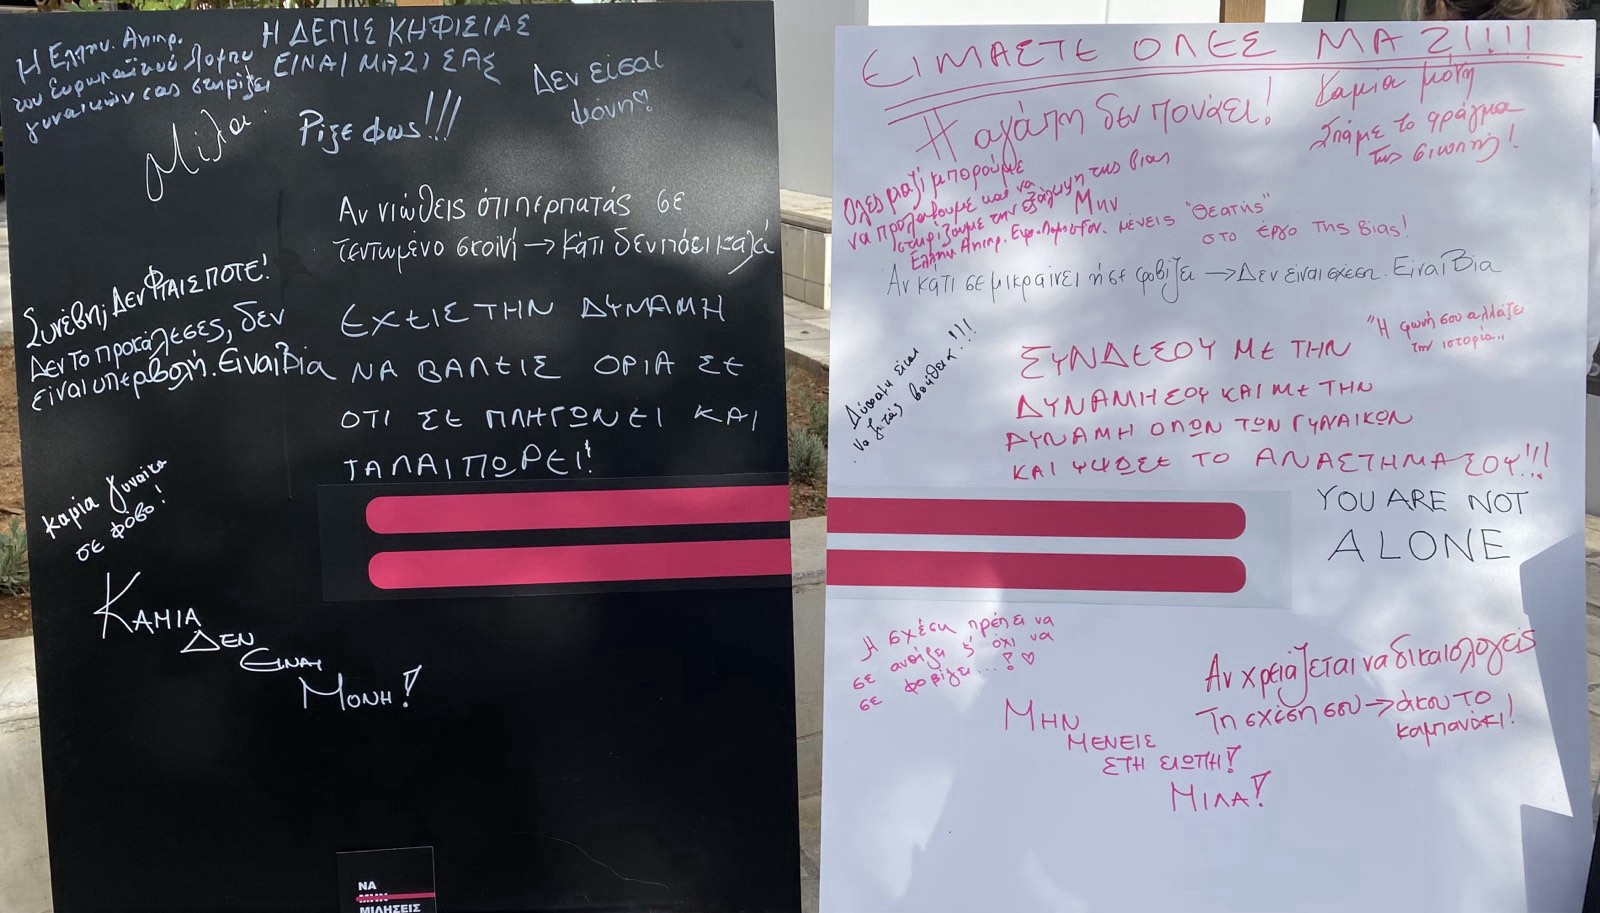 Η Ελλην. Αντιπρ.
του Ευρωπαϊκού Λόμπυ
γυναικών σας στηρίζει
Η ΔΕΠΙΣ ΚΗΦΙΣΙΑΣ
ΕΙΝΑΙ ΜΑΖΙ ΣΑΣ
Δεν είσαι
μόνη♡
Μίλα.
Ρίξε φως!!!
Αν νιώθεις ότι περπατάς σε
τεντωμένο σκοινί → κάτι δεν πάει καλά
Συνέβη; ΔΕΝ ΦΤΑΙΣ ΠΟΤΕ!
Δεν το προκάλεσες, δεν
είναι υπερβολή. Είναι Βία
ΕΧΕΙΣ ΤΗΝ ΔΥΝΑΜΗ
ΝΑ ΒΑΛΕΙΣ ΟΡΙΑ ΣΕ
ΟΤΙ ΣΕ ΠΛΗΓΩΝΕΙ ΚΑΙ
ΤΑΛΑΙΠΩΡΕΙ!
Καμία γυναίκα
σε φόβο!
ΚΑΜΙΑ
ΔΕΝ
ΕΙΝΑΙ
ΜΟΝΗ!
ΝΑ
ΜΗΝ
ΜΙΛΗΣΕΙΣ
ΕΙΜΑΣΤΕ ΟΛΕΣ ΜΑΖΙ!!!!
Η αγάπη δεν πονάει!
Καμία μόνη
Σπάμε το φράγμα
της σιωπής!
Όλες μαζί μπορούμε
να προλάβουμε και να
στηρίξουμε την εξάλειψη της βίας
Ελλην. Αντιπρ. Ευρ. Λόμπυ Γυν.
Μην
μένεις "Θεατής"
στο έργο της Βίας!
Αν κάτι σε μικραίνει ή σε φοβίζει → Δεν είναι σχέση. Είναι Βία
Δύναμη είναι
να ζητάς βοήθεια!!!!
ΣΥΝΔΕΣΟΥ ΜΕ ΤΗΝ
ΔΥΝΑΜΗ ΣΟΥ ΚΑΙ ΜΕ ΤΗΝ
ΔΥΝΑΜΗ ΟΛΩΝ ΤΩΝ ΓΥΝΑΙΚΩΝ
ΚΑΙ ΥΨΩΣΕ ΤΟ ΑΝΑΣΤΗΜΑ ΣΟΥ!!!
"Η φωνή σου αλλάζει
την ιστορία"
YOU ARE NOT
ALONE
Η σχέση πρέπει να
σε ανοίξει ς' όχι να
σε φοβίζει...! ♡
Αν χρειάζεται να δικαιολογείς
Τη σχέση σου → άκου το
καμπανάκι!
ΜΗΝ
ΜΕΝΕΙΣ
ΣΤΗ ΣΙΩΠΗ!
ΜΙΛΑ!